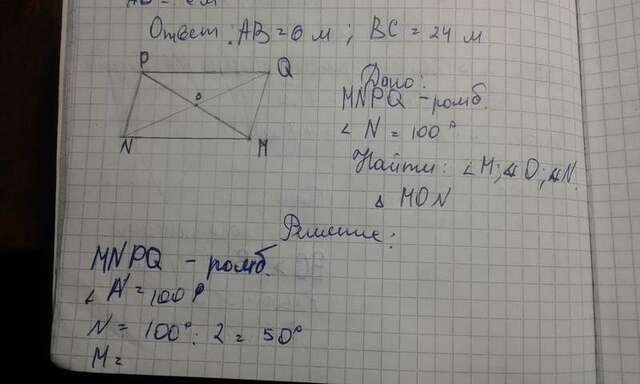 AB = 6 м
Ответ: AB = 6 м; BC = 24 м
P
Q
O
N
M
Дано:
MNPQ - ромб.
∠ N = 100°
Найти: ∠M; ∠O; ∠N.
Δ MON
Решение:
MNPQ - ромб.
∠ N = 100°
N = 100° : 2 = 50°
M =